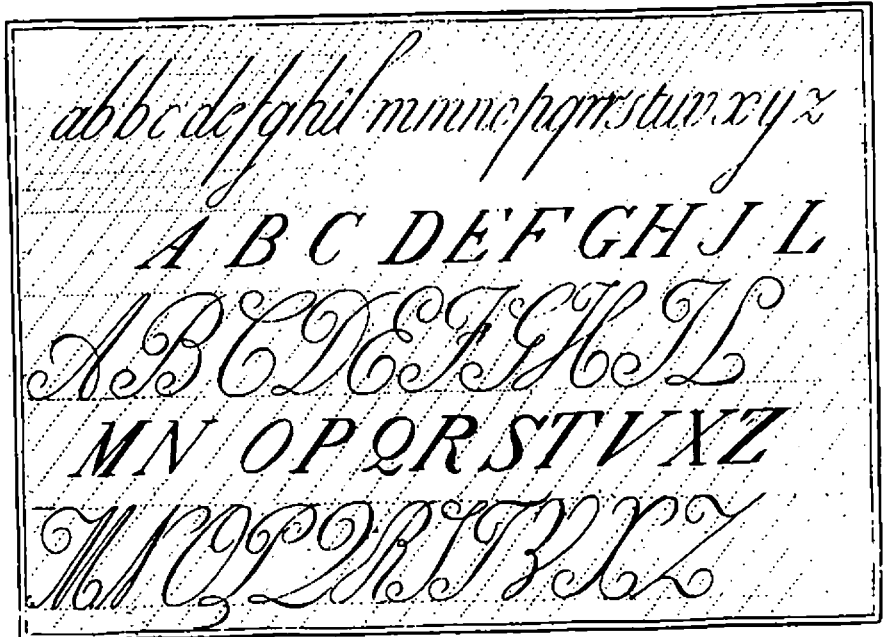 abbcdefghil mmnopqrrstuvxyz
A B C D E F G H J L
A B C D E F G H I L
M N O P Q R S T V X Z
M N O P Q R S T V X Z